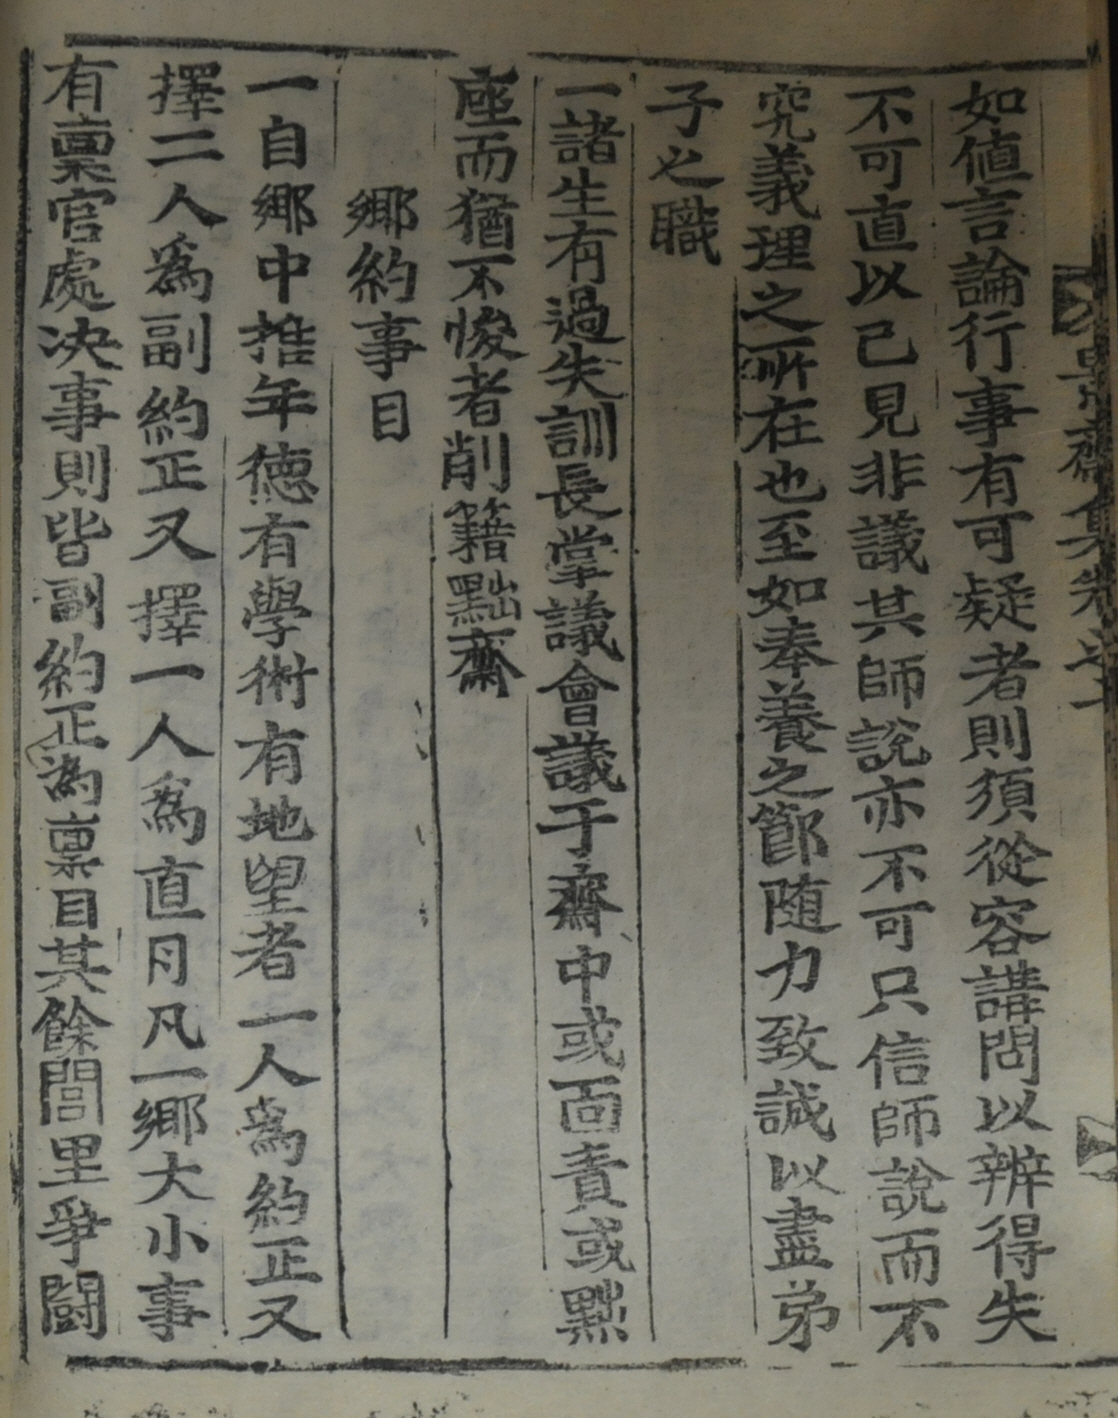 如値言論行事有可疑者則須從容講問以辨得失
不可直以己見非議其師說亦不可只信師說而不
究義理之所在也至如奉養之節随力致誠以盡弟
子之職
一諸生有過失訓長掌議會議于齋中或面責或黜
座而猶不悛者削籍黜齋
鄉約事目
一自鄉中推年德有學術有地望者一人爲約正又
擇二人爲副約正又擇一人爲直月凡一鄉大小事
有稟官處决事則皆副約正為稟目其餘閭里爭鬪